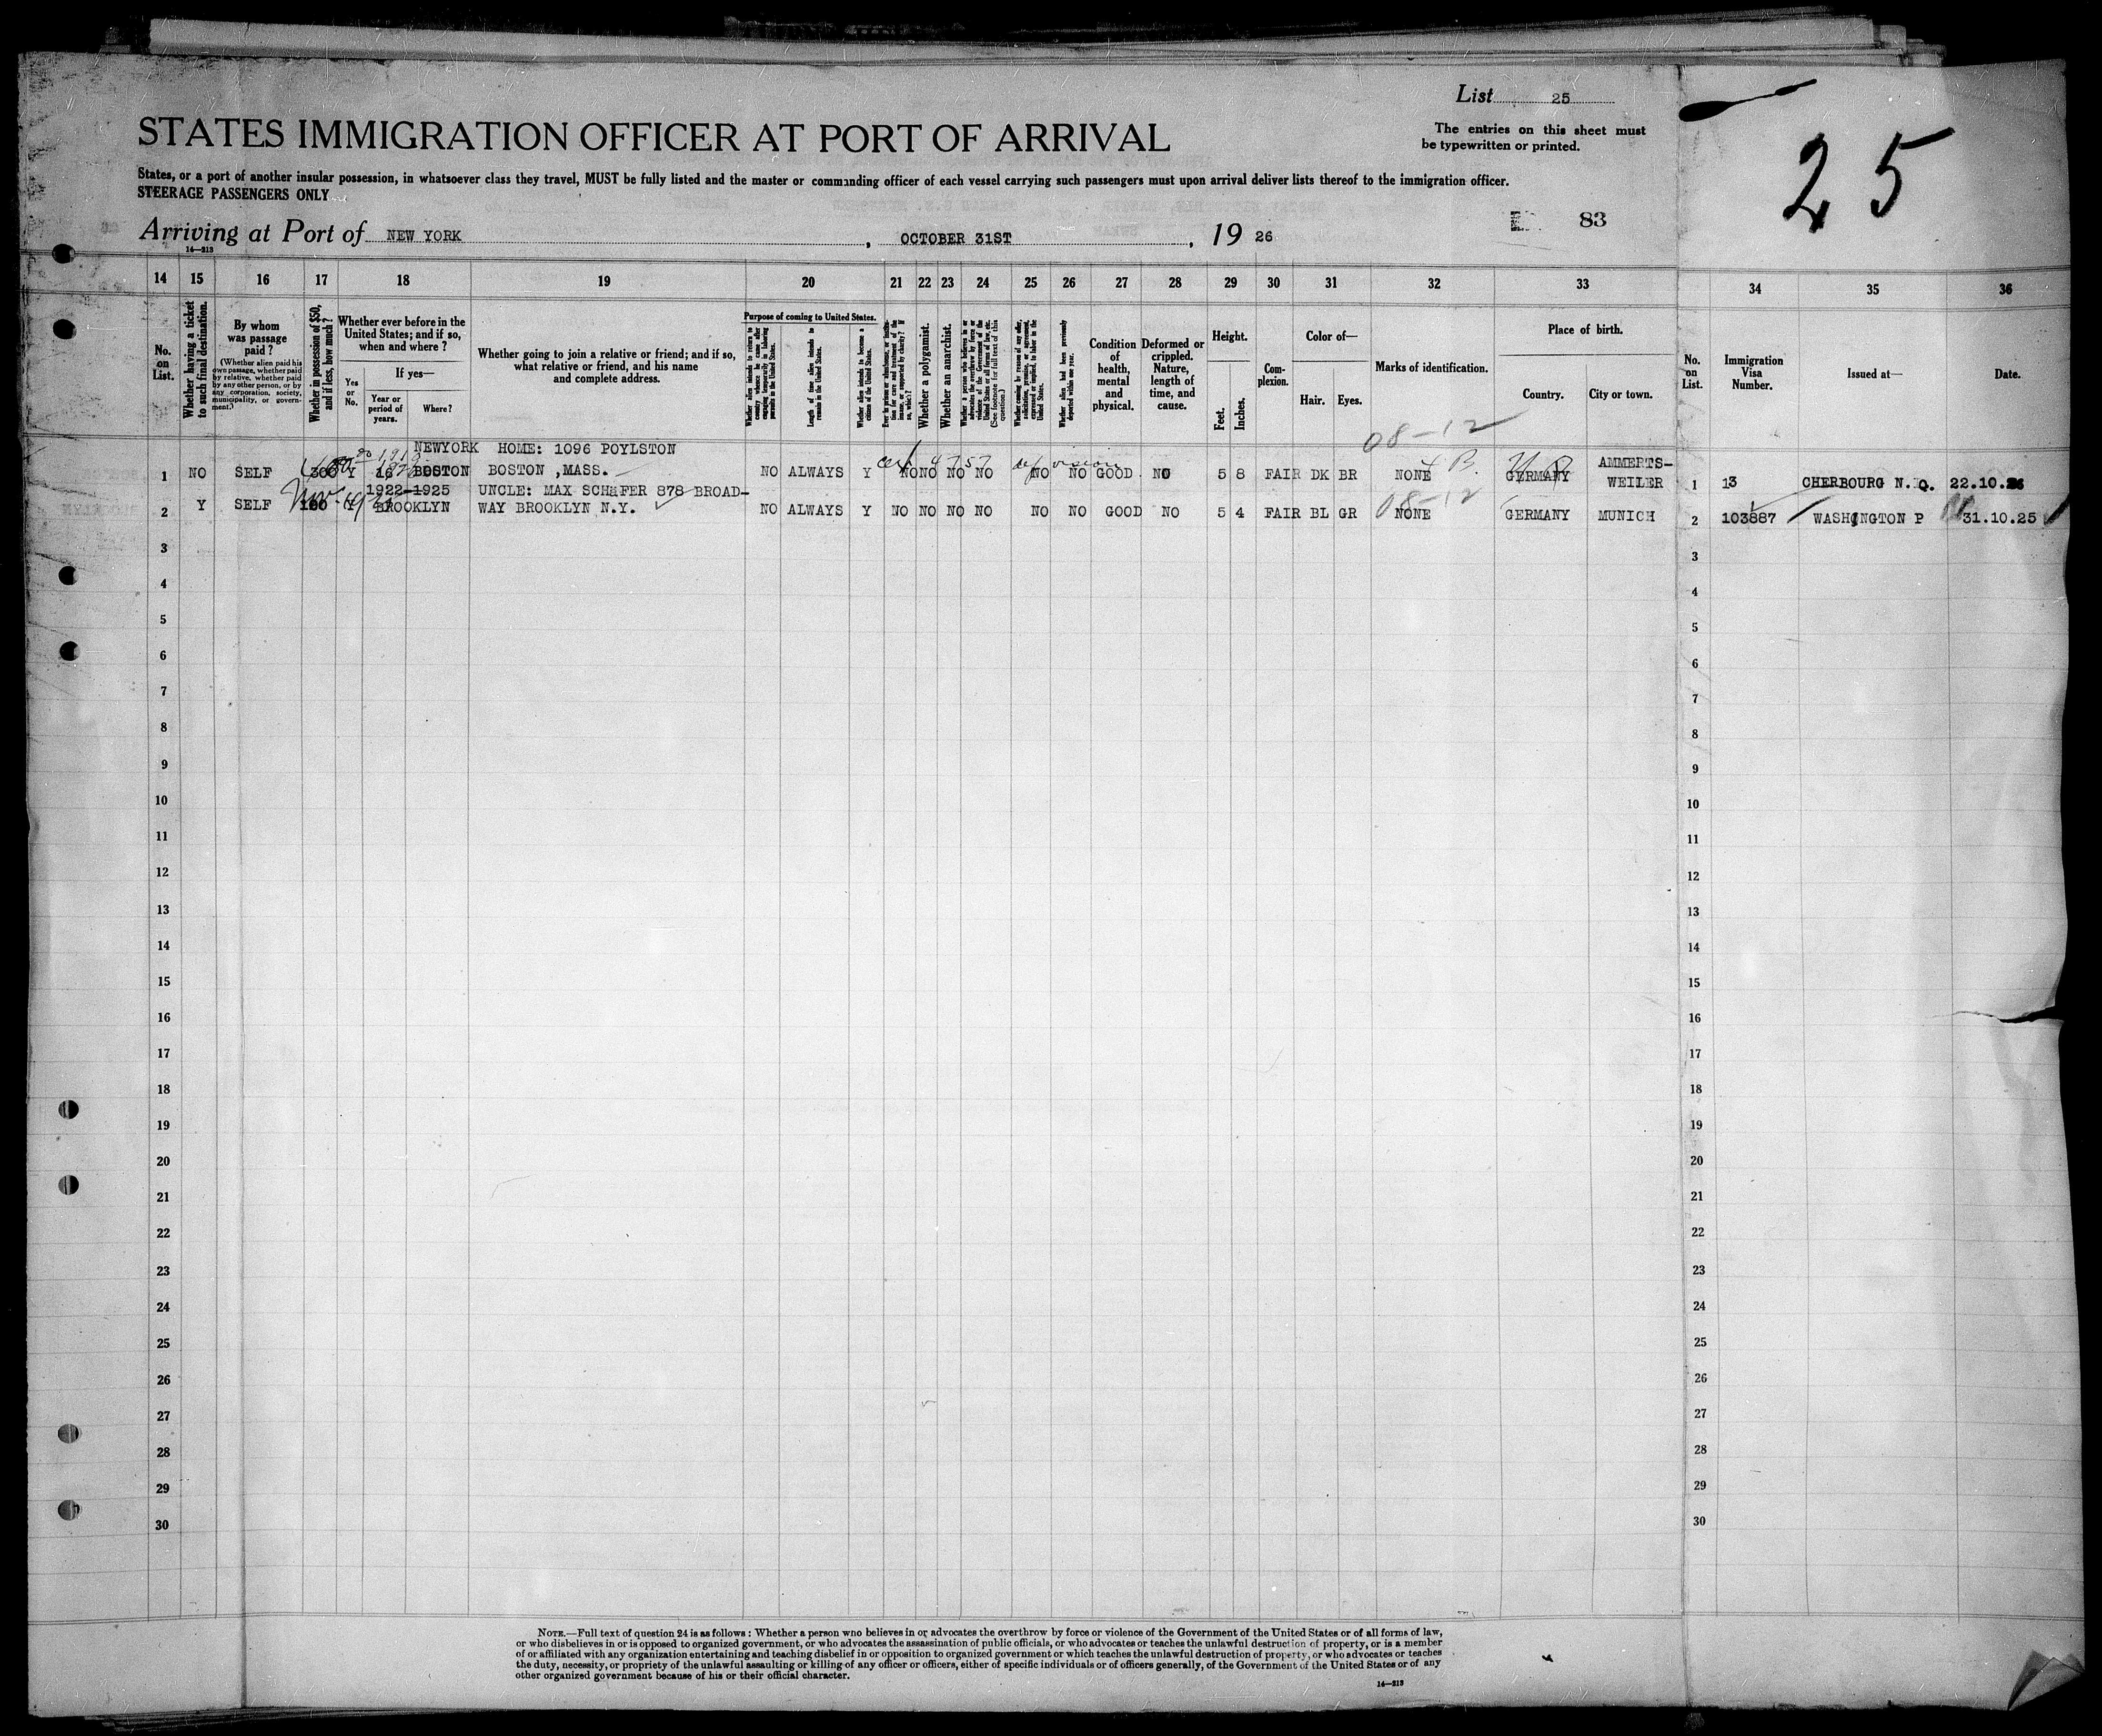 List 25
The entries on this sheet must
be typewritten or printed.
25
STATES IMMIGRATION OFFICER AT PORT OF ARRIVAL
States, or a port of another insular possession, in whatsoever class they travel, MUST be fully listed and the master or commanding officer of each vessel carrying such passengers must upon arrival deliver lists thereof to the immigration officer.
STEERAGE PASSENGERS ONLY
83
Arriving at Port of NEW YORK, OCTOBER 31ST, 19 26
14—213
14 15 16 17 18 19 20 21 22 23 24 25 26 27 28 29 30 31 32 33 34 35 36
No. on List.
Whether having a ticket to such final destination.
By whom was passage paid?
(Whether alien paid his own passage, whether paid by relative, whether paid by any other person, or by any corporation, society, municipality, or government.)
Whether in possession of $50, and if less, how much?
Whether ever before in the United States; and if so, when and where?
Yes or No.
If yes—
Year or period of years.
Where?
Whether going to join a relative or friend; and if so, what relative or friend, and his name and complete address.
Purpose of coming to United States.
Length of time alien intends to remain in the United States.
Whether alien intends to become a citizen of the United States.
Whether a polygamist.
Whether an anarchist.
Condition of health, mental and physical.
Deformed or crippled. Nature, length of time, and cause.
Height.
Feet.
Inches.
Complexion.
Color of—
Hair. Eyes.
Marks of identification.
Place of birth.
Country. City or town.
No. on List.
Immigration Visa Number.
Issued at—
Date.
08-12
NEWYORK HOME: 1096 POYLSTON
1 NO SELF 300 Y BOSTON BOSTON ,MASS. NO ALWAYS Y NO NO NO NO NO NO GOOD NO 5 8 FAIR DK BR NONE GERMANY AMMERTS-
WEILER 1 13 CHERBOURG N.Q. 22.10.26
1922-1925 UNCLE: MAX SCHäFER 878 BROAD-
08-12
2 Y SELF 100 Y BROOKLYN WAY BROOKLYN N.Y. NO ALWAYS Y NO NO NO NO NO NO GOOD NO 5 4 FAIR BL GR NONE GERMANY MUNICH 2 103887 WASHINGTON P 31.10.25
3 3
4 4
5 5
6 6
7 7
8 8
9 9
10 10
11 11
12 12
13 13
14 14
15 15
16 16
17 17
18 18
19 19
20 20
21 21
22 22
23 23
24 24
25 25
26 26
27 27
28 28
29 29
30 30
NOTE.—Full text of question 24 is as follows: Whether a person who believes in or advocates the overthrow by force or violence of the Government of the United States or of all forms of law,
or who disbelieves in or is opposed to organized government, or who advocates the assassination of public officials, or who advocates or teaches the unlawful destruction of property, or is a member
of or affiliated with any organization entertaining and teaching disbelief in or opposition to organized government or which teaches the unlawful destruction of property, or who advocates or teaches
the duty, necessity, or propriety of the unlawful assaulting or killing of any officer or officers, either of specific individuals or of officers generally, of the Government of the United States or of any
other organized government because of his or their official character.
14—213